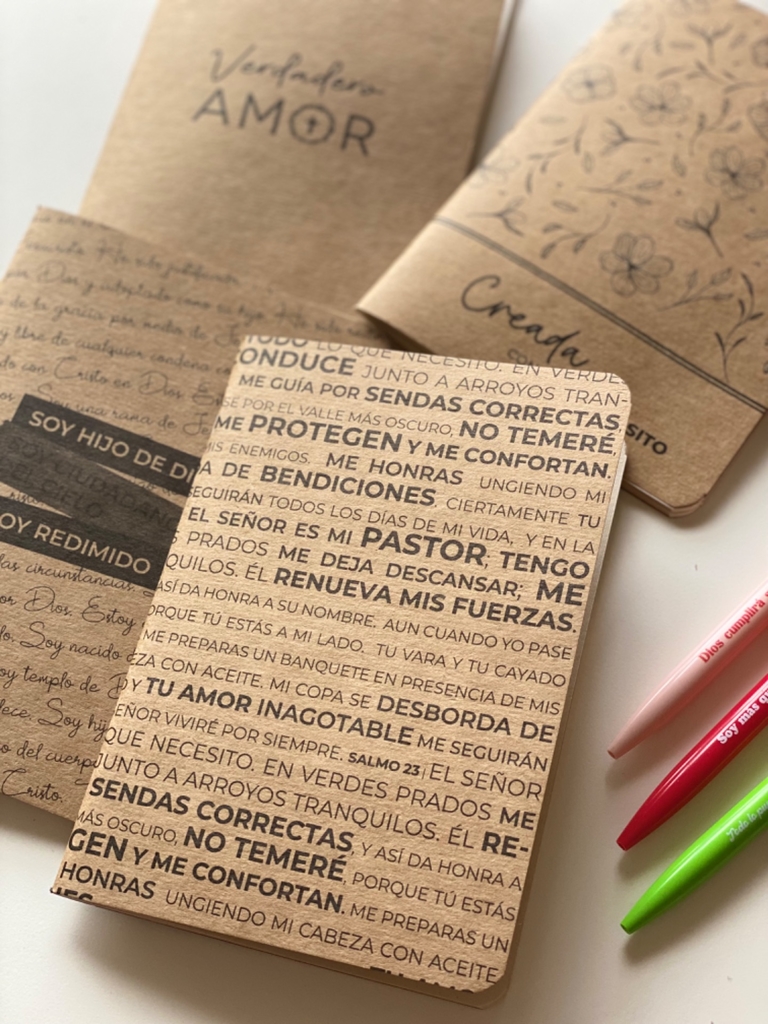 Verdadero
AMOR
Creada
SOY HIJO DE DI
SOY CIUDADANO
DEL CIELO
OY REDIMIDO
Dios y adoptado como su hijo. He sido
de la gracia por medio de
y libre de cualquier condena
do con Cristo en Dios. Estoy
. Soy una rama de
las circunstancias.
or Dios. Estoy
lo. Soy nacido
y templo de
dece. Soy hij
o del cuerpo
Cristo.
TODO LO QUE NECESITO. EN VERDE
ONDUCE JUNTO A ARROYOS TRAN-
ME GUÍA POR SENDAS CORRECTAS,
SE POR EL VALLE MÁS OSCURO, NO TEMERÉ,
ME PROTEGEN Y ME CONFORTAN.
MIS ENEMIGOS. ME HONRAS UNGIENDO MI
A DE BENDICIONES, CIERTAMENTE TU
SEGUIRÁN TODOS LOS DÍAS DE MI VIDA, Y EN LA
EL SEÑOR ES MI PASTOR; TENGO
S PRADOS ME DEJA DESCANSAR; ME
QUILOS. ÉL RENUEVA MIS FUERZAS.
ASÍ DA HONRA A SU NOMBRE. AUN CUANDO YO PASE
PORQUE TÚ ESTÁS A MI LADO. TU VARA Y TU CAYADO
ME PREPARAS UN BANQUETE EN PRESENCIA DE MIS
EZA CON ACEITE. MI COPA SE DESBORDA DE
D Y TU AMOR INAGOTABLE ME SEGUIRÁN
EÑOR VIVIRÉ POR SIEMPRE. SALMO 23 | EL SEÑOR
QUE NECESITO. EN VERDES PRADOS ME
JUNTO A ARROYOS TRANQUILOS. ÉL RE-
SENDAS CORRECTAS, Y ASÍ DA HONRA A
MÁS OSCURO, NO TEMERÉ, PORQUE TÚ ESTÁS
GEN Y ME CONFORTAN. ME PREPARAS UN
HONRAS UNGIENDO MI CABEZA CON ACEITE
Dios cumplirá
Soy más qu
Todo lo pu